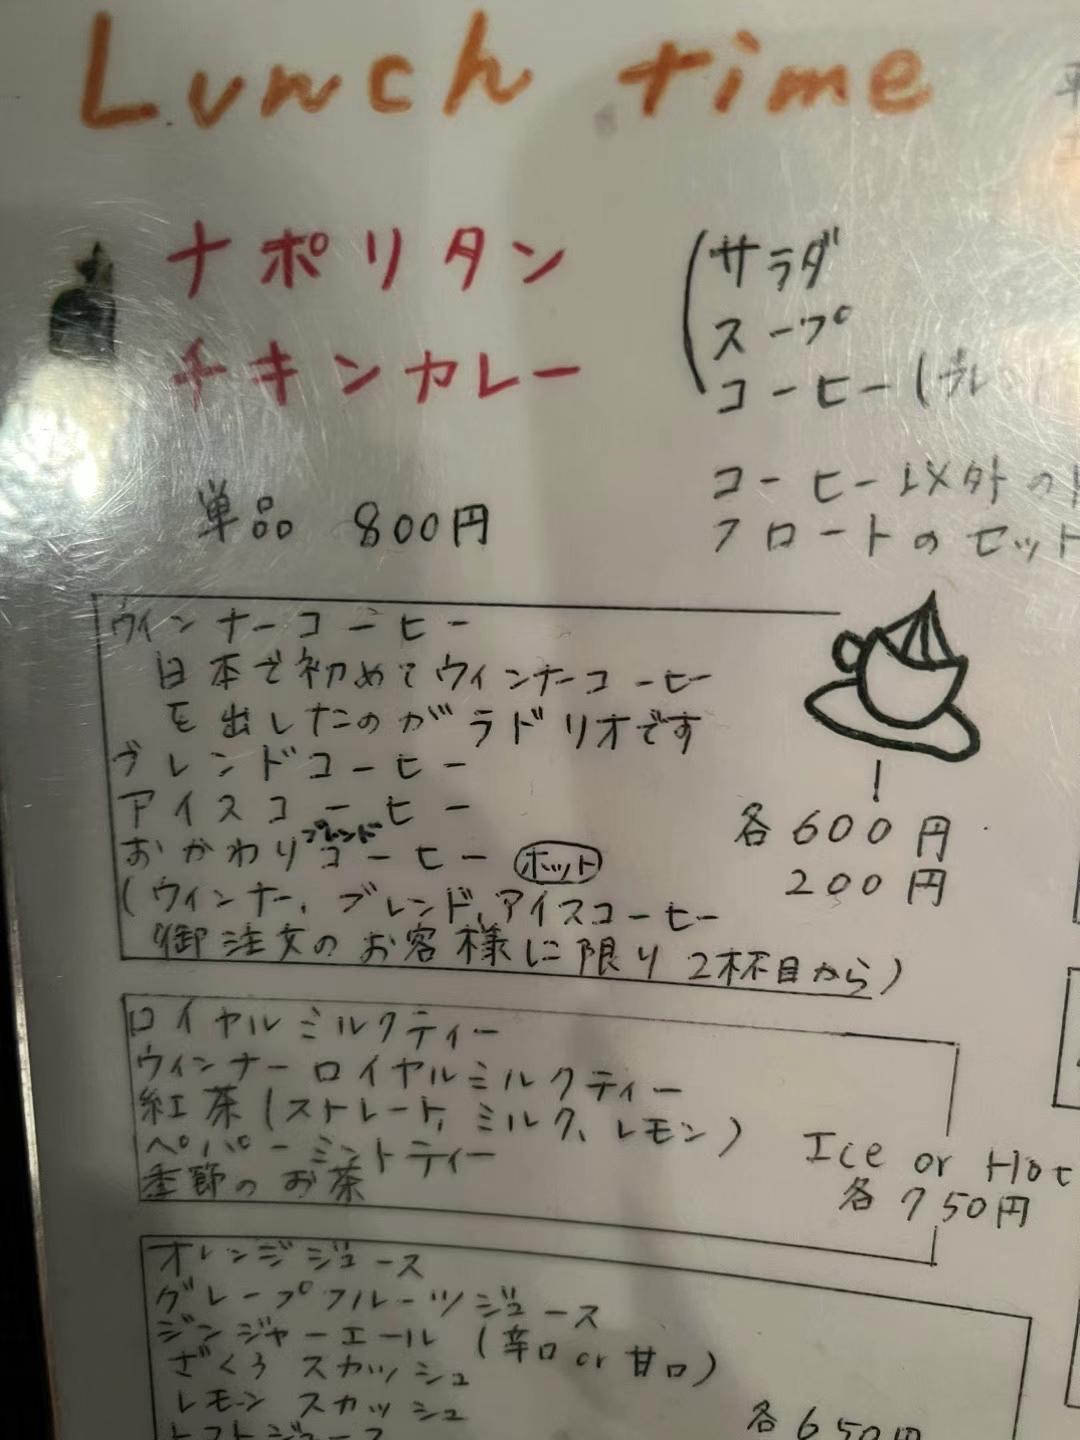 Lunch time
ナポリタン
チキンカレー
サラダ
スープ
コーヒー(ブレン
単品 800円
コーヒー以外の
フロートのセット
ウィンナーコーヒー
日本で初めてウィンナーコーヒー
を出したのがラドリオです
ブレンドコーヒー
アイスコーヒー
各600円
おかわりブレンドコーヒー ホット
200円
(ウィンナー、ブレンド、アイスコーヒー
御注文のお客様に限り 2杯目から)
ロイヤルミルクティー
ウィンナーロイヤルミルクティー
紅茶(ストレート、ミルク、レモン)
ペパーミントティー
季節のお茶
Ice or Hot
各750円
オレンジジュース
グレープフルーツジュース
ジンジャーエール (辛口 or 甘口)
ざくろスカッシュ
レモンスカッシュ
トマトジュース
各650円